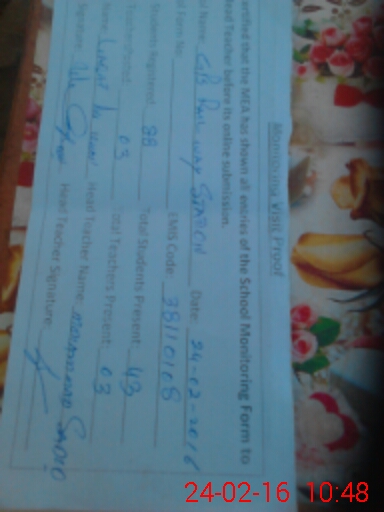 Monitoring Visit Proof
ertified that the MEA has shown all entries of the School Monitoring Form to
ead Teacher before its online submission.
ol Name: GPS Railway Station Date: 24-02-2016
l Form No: EMIS Code: 38110108
Students Registered: 88 Total Students Present: 43
Teachers Posted: 03 otal Teachers Present: 03
Name: Head Teacher Name: Muhammad Sadiq
Signature: Head Teacher Signature:
24-02-16 10:48